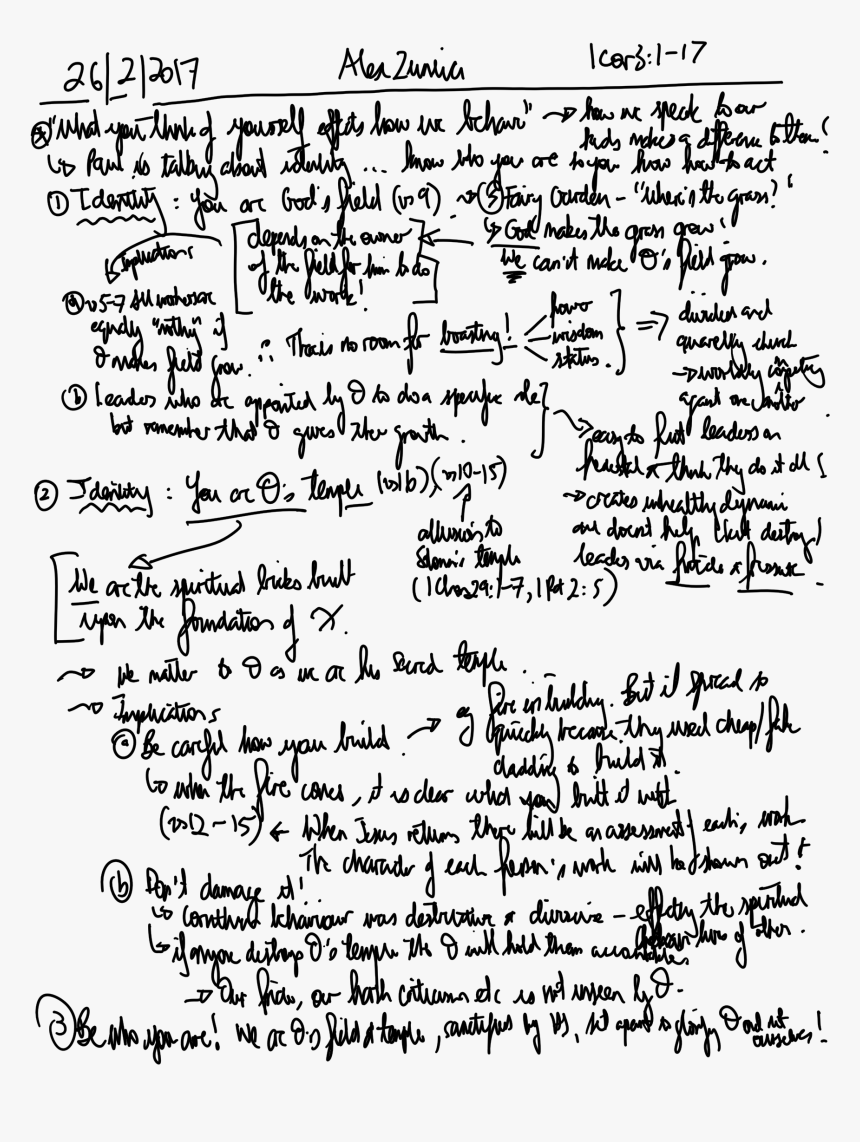 26/2/2017
1 Cor 3:1-17
"What you think of yourself effects how we behave" → how we speak to our
kids makes a difference to them!
↳ Paul is talking about identity... know who you are so you how to act
① Identity: You are God's field (vs 9) → Fairy Garden - "where's the grass?"
↳ God makes the grass grow!
We can't make Θ's field grow.
[depends on the owner
of the field for him to do
the work!]
Implications
ⓐ vs 5-7 All workers are
equally "nothing" if
Θ makes field grow. ∴ There is no room for boasting!
power
wisdom
status.
⇒ divided and
quarrelling church
→ worldly
ⓑ Leaders who are appointed by Θ to do a specific role
but remember that Θ gives the growth.
→ easy to put leaders on
pedestal & think they do it all!
→ creates unhealthy dynamic
and doesn't help (but destroy)
leaders via pride & pressure.
② Identity: You are Θ's temple (vs 16) (vs 10-15)
allusion to
temple
(1 Chron 29:1-7, 1 Pet 2:5)
[We are the spiritual bricks built
upon the foundation of X.
→ We matter to Θ as we are his sacred temple.
→ Implications
ⓐ Be careful how you build. → eg fire in building. But it spread so
quickly because they used cheap/fake
cladding to build it.
↳ when the fire comes, it is clear what you built it with
(vs 12-15) ← When Jesus returns there will be an assessment of each's work
The character of each person's work will be shown out!
ⓑ Don't damage it!
↳ Corinthian behaviour was destructive & divisive - effecting the spiritual
lives of other.
↳ if anyone destroys Θ's temple the Θ will hold them accountable
→ Our pride, our harsh criticisms etc is not unseen by Θ.
③ Be who you are! We are Θ's field & temple, sanctified by HS, set apart to glorify Θ and not
ourselves!